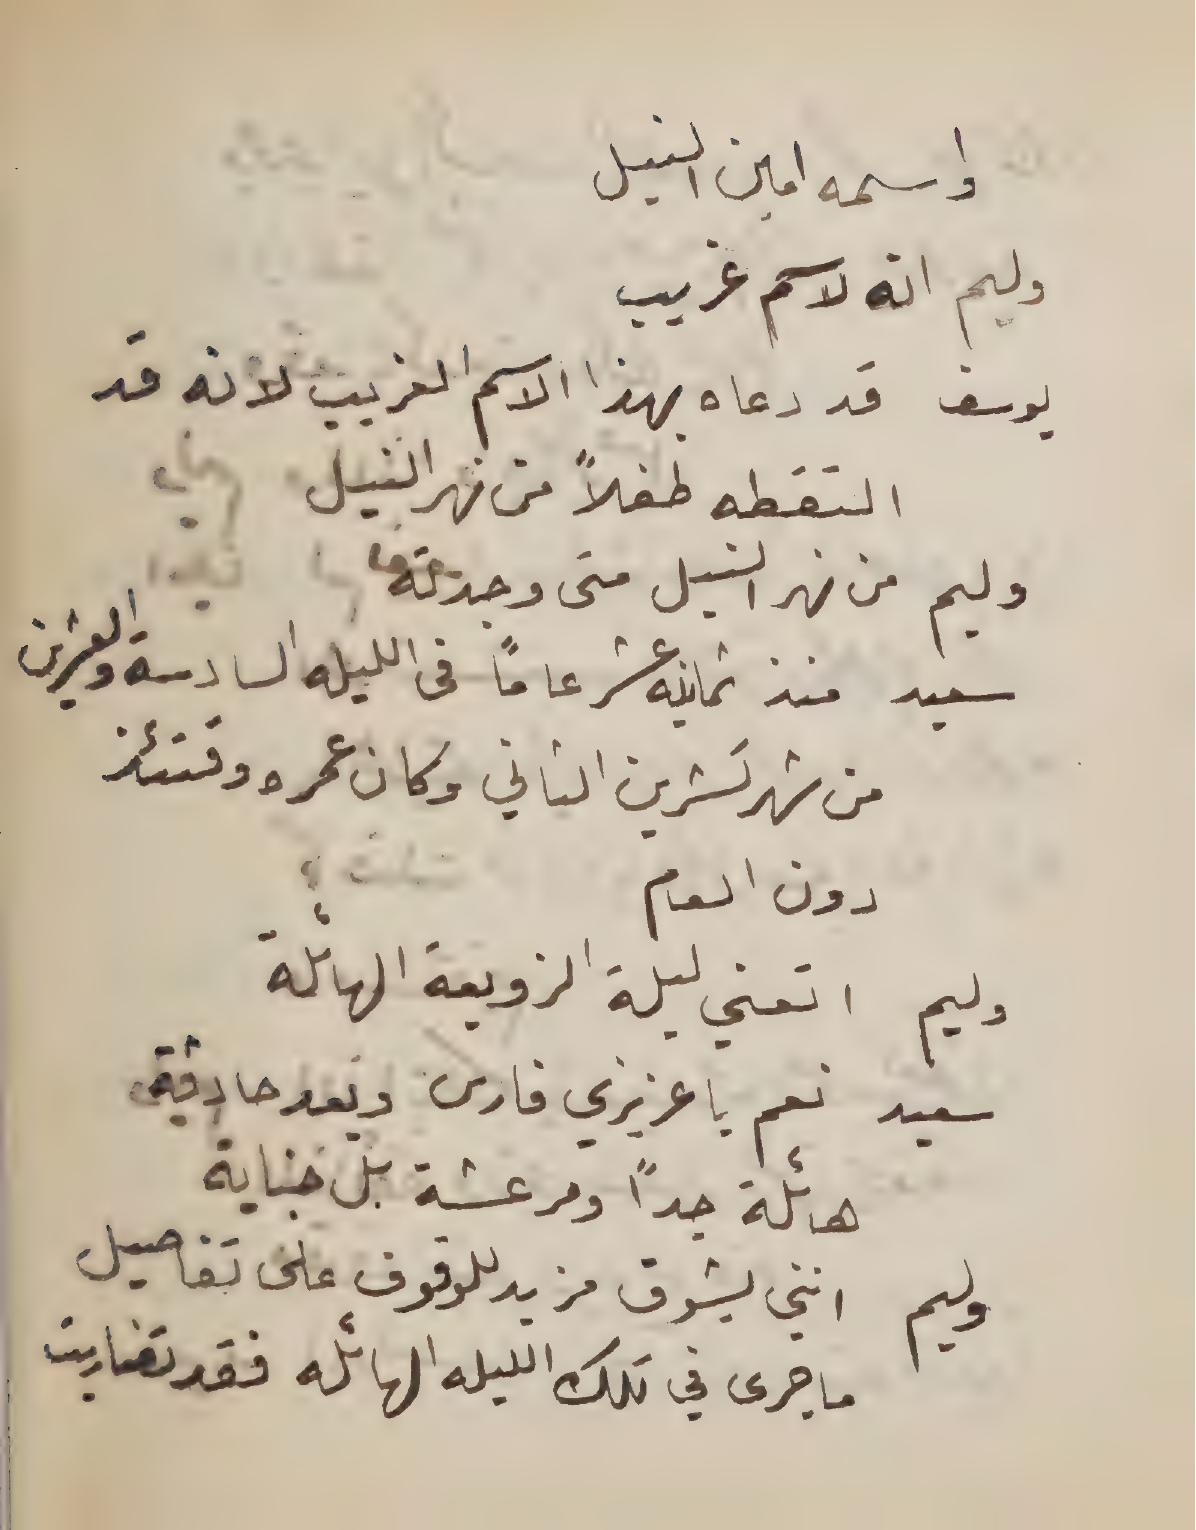 واسمه امين النيل
وليم انه لاسم غريب
يوسف قد دعاه بهذا الاسم الغريب لانه قد
التقطه طفلاً من نهر النيل
وليم من نهر النيل متى وجدته
سعيد منذ ثمانيه عشر عاماً فى الليله السادسة والعشرين
من شهر تشرين الثاني وكان عمره وقتئذ
دون العام
وليم اتعني ليلة الزوبعة الهائلة
سعيد نعم يا عزيزي فارس وبعد حادثة
هائلة جداً ومرعشة بل جناية
وليم انني بشوق مزيد للوقوف على تفاصيل
ما جرى في تلك الليله الهائله فقد تضاربت